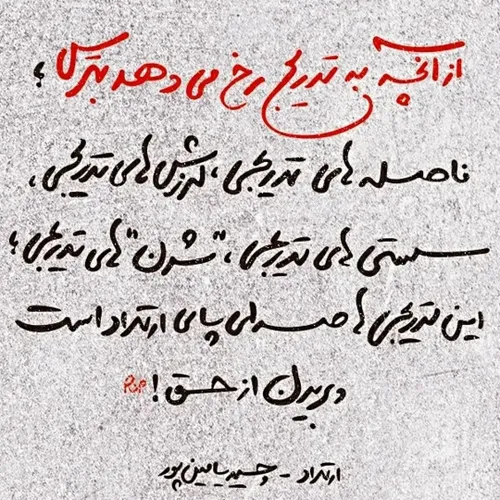 از آنچه به تدریج رخ می دهد بترس؛
فاصله های تدریجی، لغزش های تدریجی،
سستی های تدریجی، "شدن" های تدریجی؛
این تدریجی ها صدای پای ارتداد است
و بریدن از حق!
ارتداد - وحید یامین پور